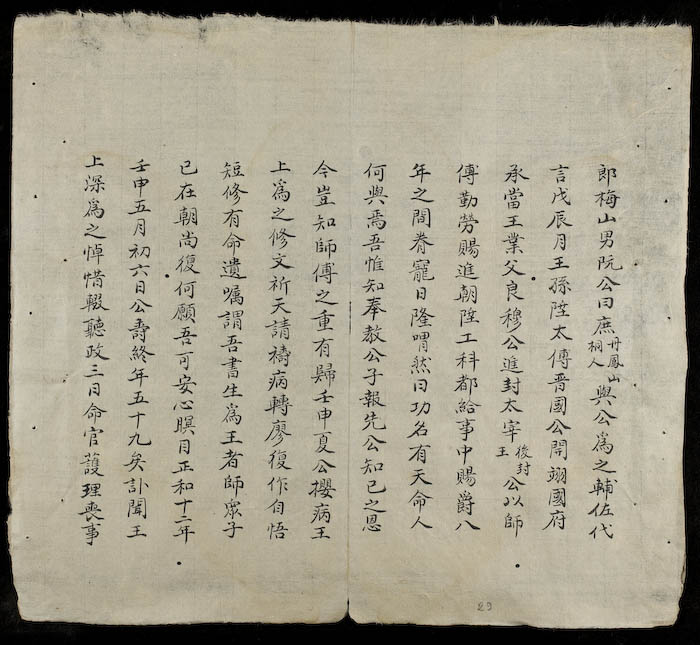 郎梅山男阮公曰庶丹鳳山桐人與公爲之輔佐代
言戊辰月王孫陞太傅晋國公開翊國府
承當王業父良穆公進封太宰後封王公以師
傅勤勞賜進朝陞工科都給事中賜爵八
年之間眷寵日隆喟然曰功名有天命人
何與焉吾惟知奉教公子報先公知己之恩
今豈知師傅之重有歸壬申夏公攖病王
上爲之修文祈天請禱病轉廖復作自悟
短修有命遺嘱謂吾書生爲王者師眾子
已在朝尚復何願吾可安心瞑目正和十二年
壬申五月初六日公壽終年五十九矣訃聞王
上深爲之悼惜輟聽政三日命官護理喪事
29